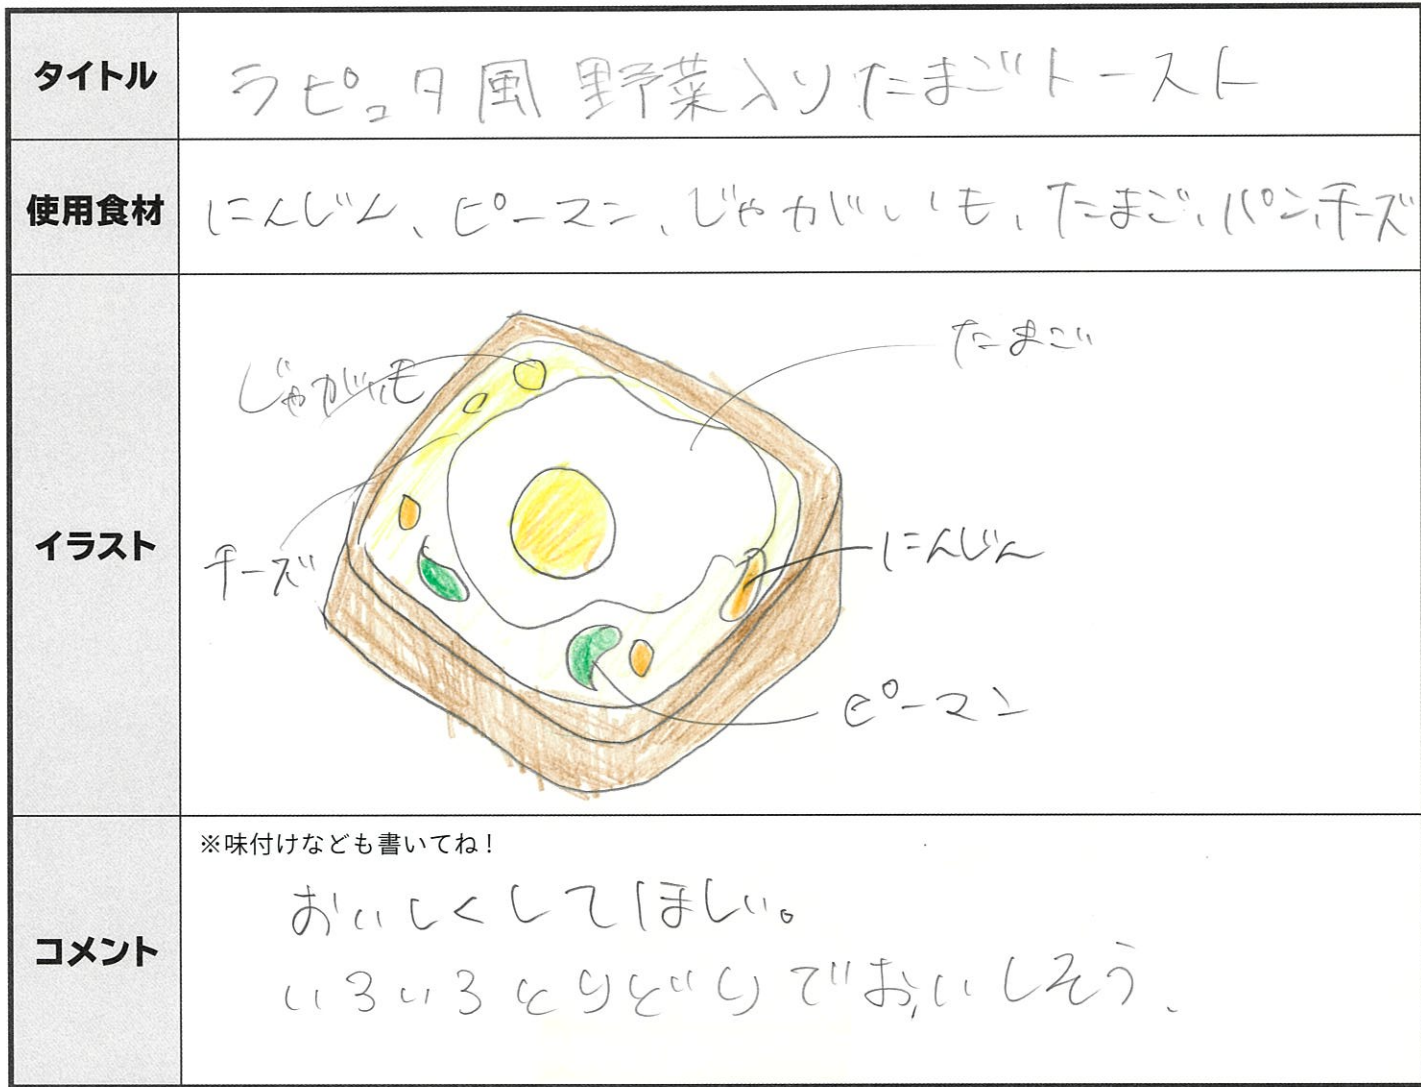 タイトル
ラピュタ風 野菜入りたまごトースト
使用食材
にんじん、ピーマン、じゃがいも、たまご、パン、チーズ
イラスト
じゃがいも
たまご
チーズ
にんじん
ピーマン
コメント
※味付けなども書いてね！
おいしくしてほしい。
いろいろとりどりでおいしそう、